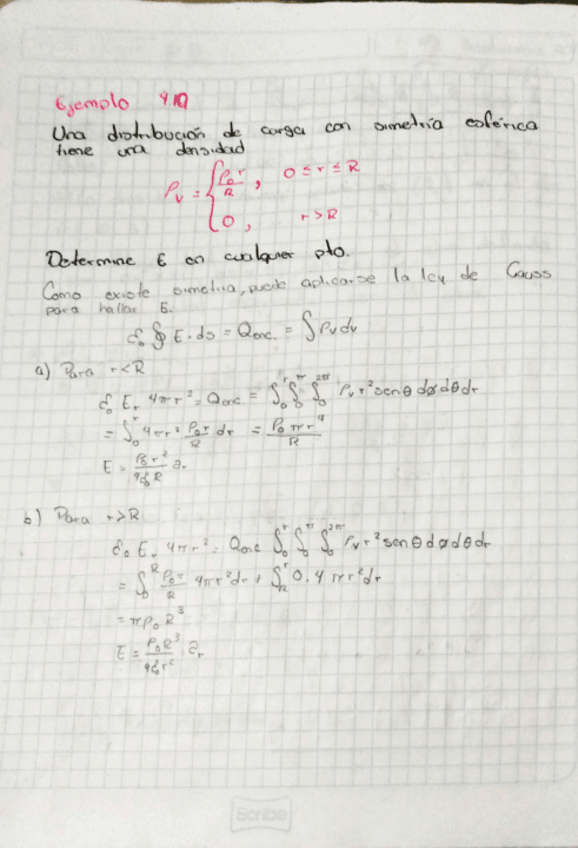 Ejemplo 4.10
Una distribución de carga con simetría esférica
tiene una densidad
ρv = { ρ₀r/R , 0 ≤ r ≤ R
0 , r > R
Determine E en cualquier pto.
Como existe simetria, puede aplicarse la ley de Gauss
para hallar E.
ε₀ ∮ E · ds = Qenc. = ∫ρv dv
a) Para r<R
ε₀ Er 4πr² = Qenc = ∫₀^r ∫₀^π ∫₀^2π ρv r² sen θ dø dθ dr
= ∫₀^r 4πr² ρ₀r/R dr = ρ₀πr⁴/R
E = ρ₀r²/4ε₀R ar
b) Para r>R
ε₀ Er 4πr² = Qenc ∫₀^r ∫₀^π ∫₀^2π ρv r² sen θ dø dθ dr
= ∫₀^R ρ₀r/R 4πr² dr + ∫R^r 0.4πr² dr
= πρ₀R³
E = ρ₀R³/4ε₀r² ar
Scribe